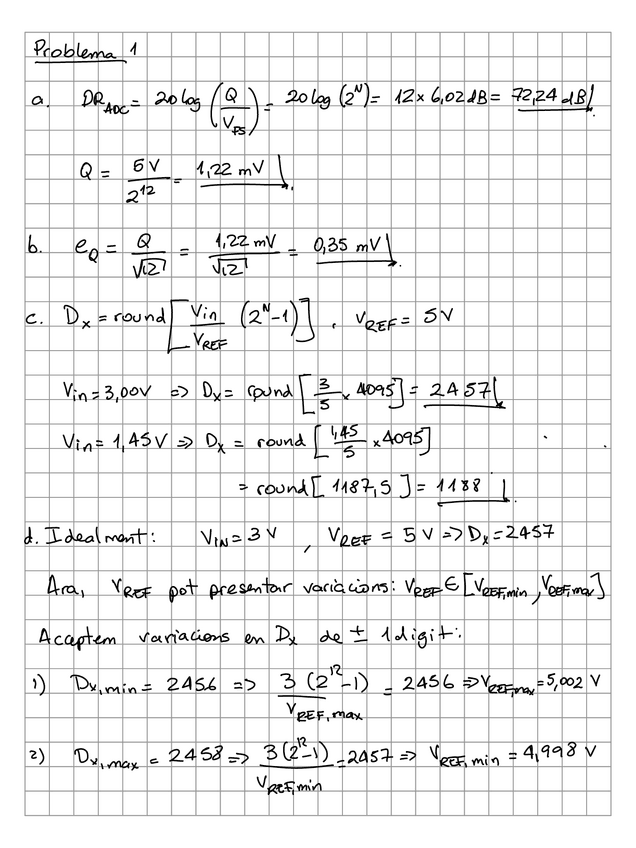 Problema 1
a. DR_ADC = 20 log (Q / V_FS) = 20 log (2^N) = 12 × 6,02 dB = 72,24 dB
Q = 5 V / 2^12 = 1,22 mV
b. e_Q = Q / √12 = 1,22 mV / √12 = 0,35 mV
c. D_x = round [Vin / V_REF (2^N-1)], V_REF = 5 V
Vin = 3,00V => D_x = round [3/5 × 4095] = 2457
Vin = 1,45 V => D_x = round [1,45/5 × 4095]
= round [1187,5] = 1188
d. Idealment: V_IN = 3 V, V_REF = 5 V => D_x = 2457
Ara, V_REF pot presentar variacions: V_REF ∈ [V_REF,min, V_REF,max]
Acceptem variacions en D_x de ± 1 digit:
1) D_x,min = 2456 => 3 (2^12-1) / V_REF,max = 2456 => V_REF,max = 5,002 V
2) D_x,max = 2458 => 3 (2^12-1) / V_REF,min = 2457 => V_REF,min = 4,998 V